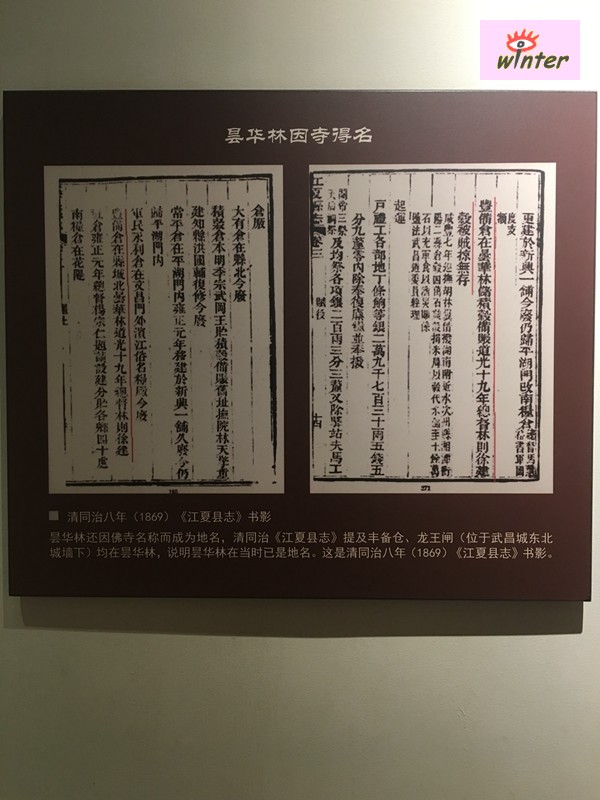 winter
昙华林因寺得名
倉廒
大有倉在縣北今廢
積穀倉本明季宗武岡王貯積穀備賑舊址撫院林天擎重
建知縣洪國輔復修今廢
常平倉在平湖門內雍正元年移建於新興一舖久廢今仍
歸平湖門內
軍民永利倉在文昌門外濱江俗名糧廠今廢
豐備倉在縣城北曇華林道光十九年總督林則徐建
倉雍正元年總督楊宗仁題請設建分貯各鄉四十處
南糧倉在花隄
更建於新興一舖今廢仍歸平湖門改南糧倉
豐備倉在曇華林儲積穀備賑道光十九年總督林則徐建
穀被賊掠無存
起運
戶禮工各部地丁條餉等銀二萬九千七百三十兩五錢五
分九釐等內除奉復廉並奉撥
三祭及均祭各項銀二百兩三分三釐又除驛站夫馬工
江夏縣志 卷三 賦役 十四
清同治八年（1869）《江夏县志》书影
昙华林还因佛寺名称而成为地名，清同治《江夏县志》提及丰备仓、龙王闸（位于武昌城东北
城墙下）均在昙华林，说明昙华林在当时已是地名。这是清同治八年（1869）《江夏县志》书影。